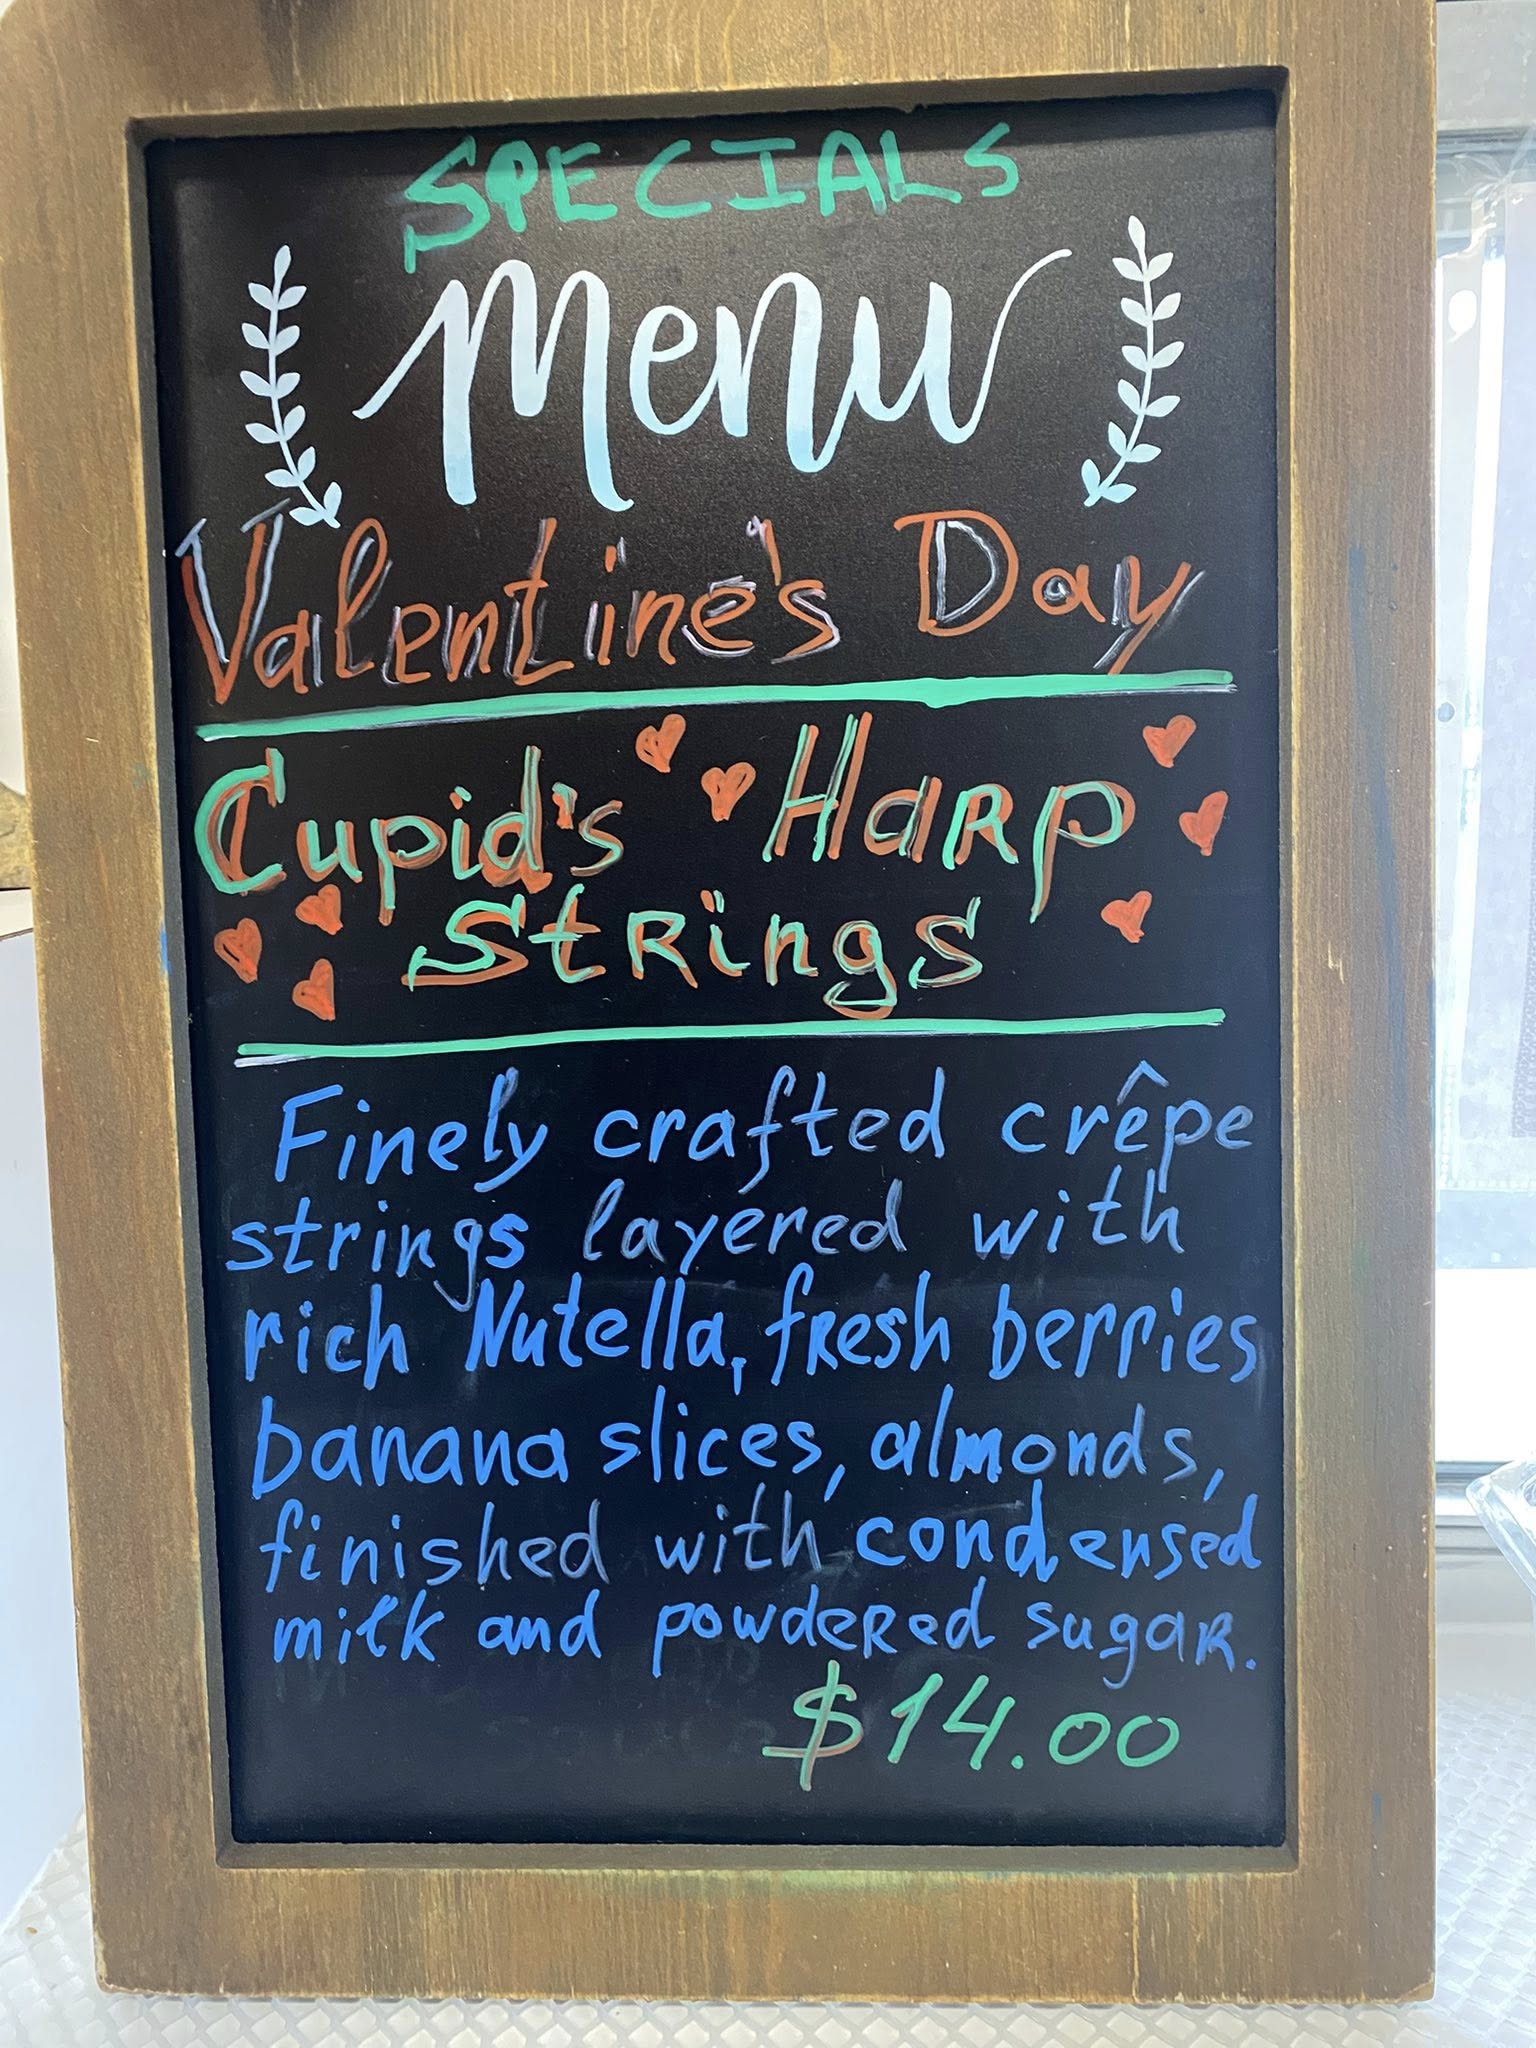 SPECIALS
Menu
Valentine's Day
Cupid's Harp
Strings
Finely crafted crêpe
strings layered with
rich Nutella, fresh berries
banana slices, almonds,
finished with condensed
milk and powdered sugar.
$14.00